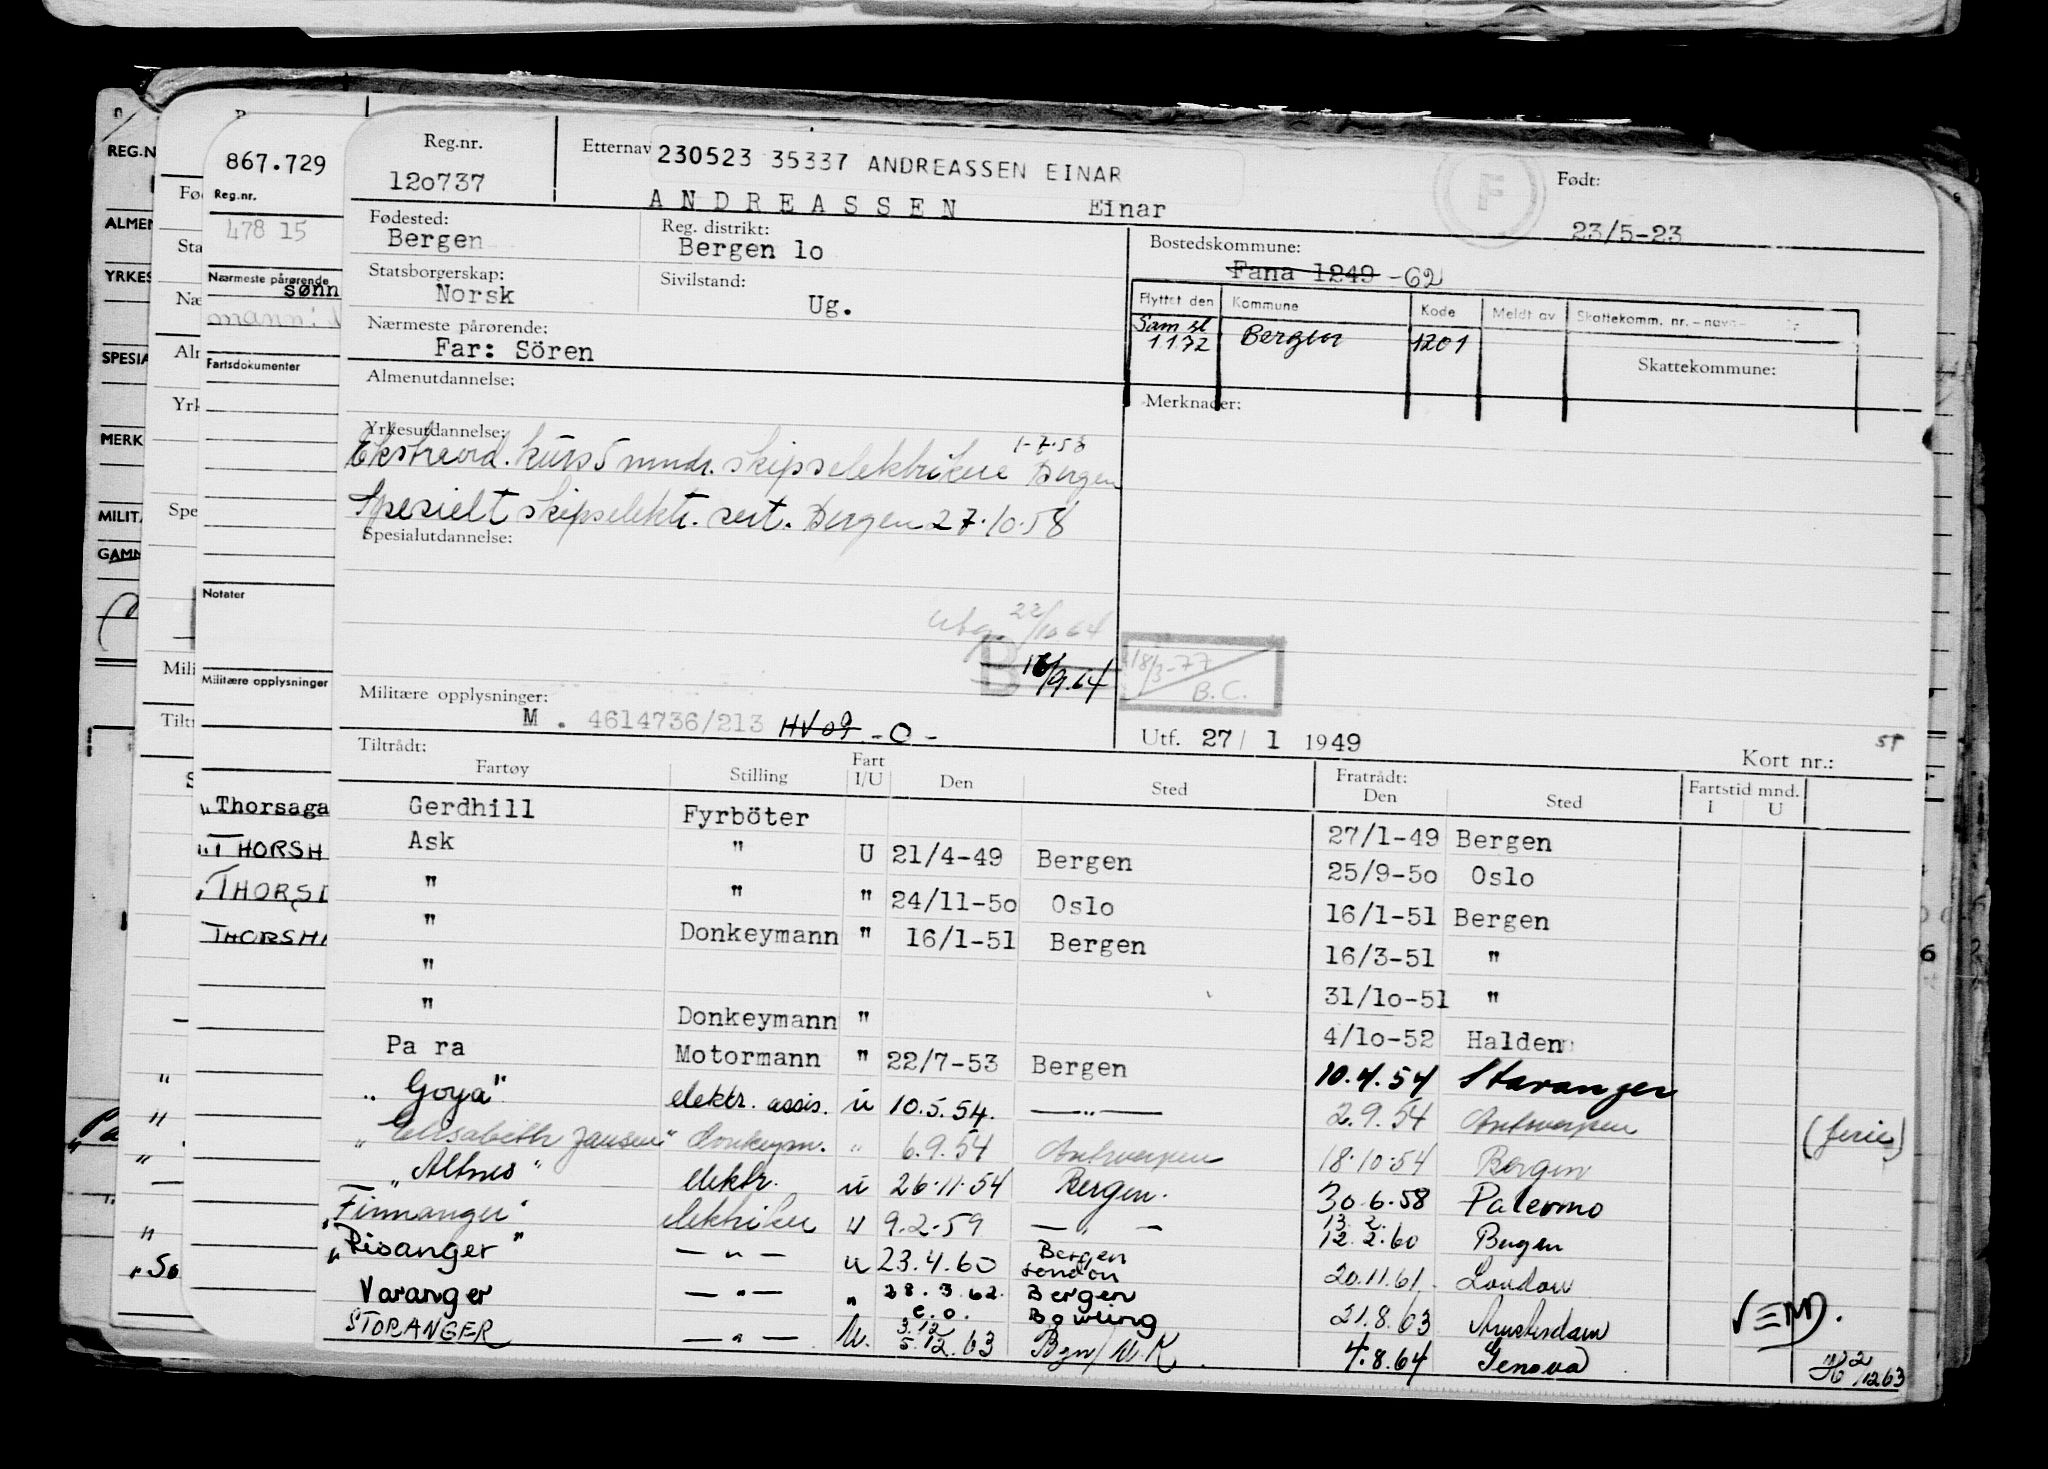 Reg.nr.
120737
Etternav 230523 35337 ANDREASSEN EINAR
ANDREASSEN Einar
F
Født:
23/5-23
Fødested:
Bergen
Reg. distrikt:
Bergen lo
Bostedskommune:
Fana 1249 -62
Statsborgerskap:
Norsk
Sivilstand:
Ug.
Flyttet den Kommune Kode Meldt av Skattekomm. nr. - navn-
Sam st
1172 Bergen 1201
Nærmeste pårørende:
Far: Sören
Skattekommune:
Almenutdannelse:
Merknader:
Yrkesutdannelse:
Ekstraord. kurs 5 mndr. skipselektrikere Bergen 1-7-58
Spesielt skipselektr. sert. Bergen 27.10.58
Spesialutdannelse:
22/10 64
B 16/9.64
18/3-77
B.C.
Militære opplysninger:
M. 4614736/213 HV09 -0-
Utf. 27/ 1 1949
Kort nr.:
Tiltrådt:
Fartøy Stilling Fart I/U Den Sted Fratrådt: Den Sted Fartstid mnd. I U
Gerdhill Fyrböter 27/1-49 Bergen
Ask " U 21/4-49 Bergen 25/9-5o Oslo
" " " 24/11-5o Oslo 16/1-51 Bergen
" Donkeymann " 16/1-51 Bergen 16/3-51 "
" 31/lo-51 "
" Donkeymann " 4/lo-52 Halden
Pa ra Motormann " 22/7-53 Bergen 10.4.54 Stavanger
"Goya" elektr. assis. u 10.5.54. —"— 2.9.54 Antwerpen (ferie)
"Elisabeth Jansen" donkeym. " 6.9.54 Antwerpen 18.10.54 Bergen
"Altnes" elektr. u 26.11.54 Bergen. 30.6.58 Palermo
"Finnanger" elektriker u 9.2.59 —"— 13.2. 12.2.60 Bergen
"Risanger" —"— u 23.4.60 Bergen London 20.11.61. London
Varanger —"— " 28.3.62. Bergen 21.8.63 Amsterdam
e.o. Bowling
STORANGER —"— U. 3.12 5.12.63 Bgn/U.K. 4.8.64 Genova
VEND.
867.729
Reg.nr.
478 15
Nærmeste pårørende
sønn
mann:
Fartsdokumenter
Notater
Militære opplysninger
"Thorsaga
"THORSH
"THORSD
THORSH
REG.N
ALMEN
YRKES
SPESIA
MERK
MILITÆ
GAMN
Fø
Sta
Næ
Aln
Yrk
Spe
Mili
Tilt
"So